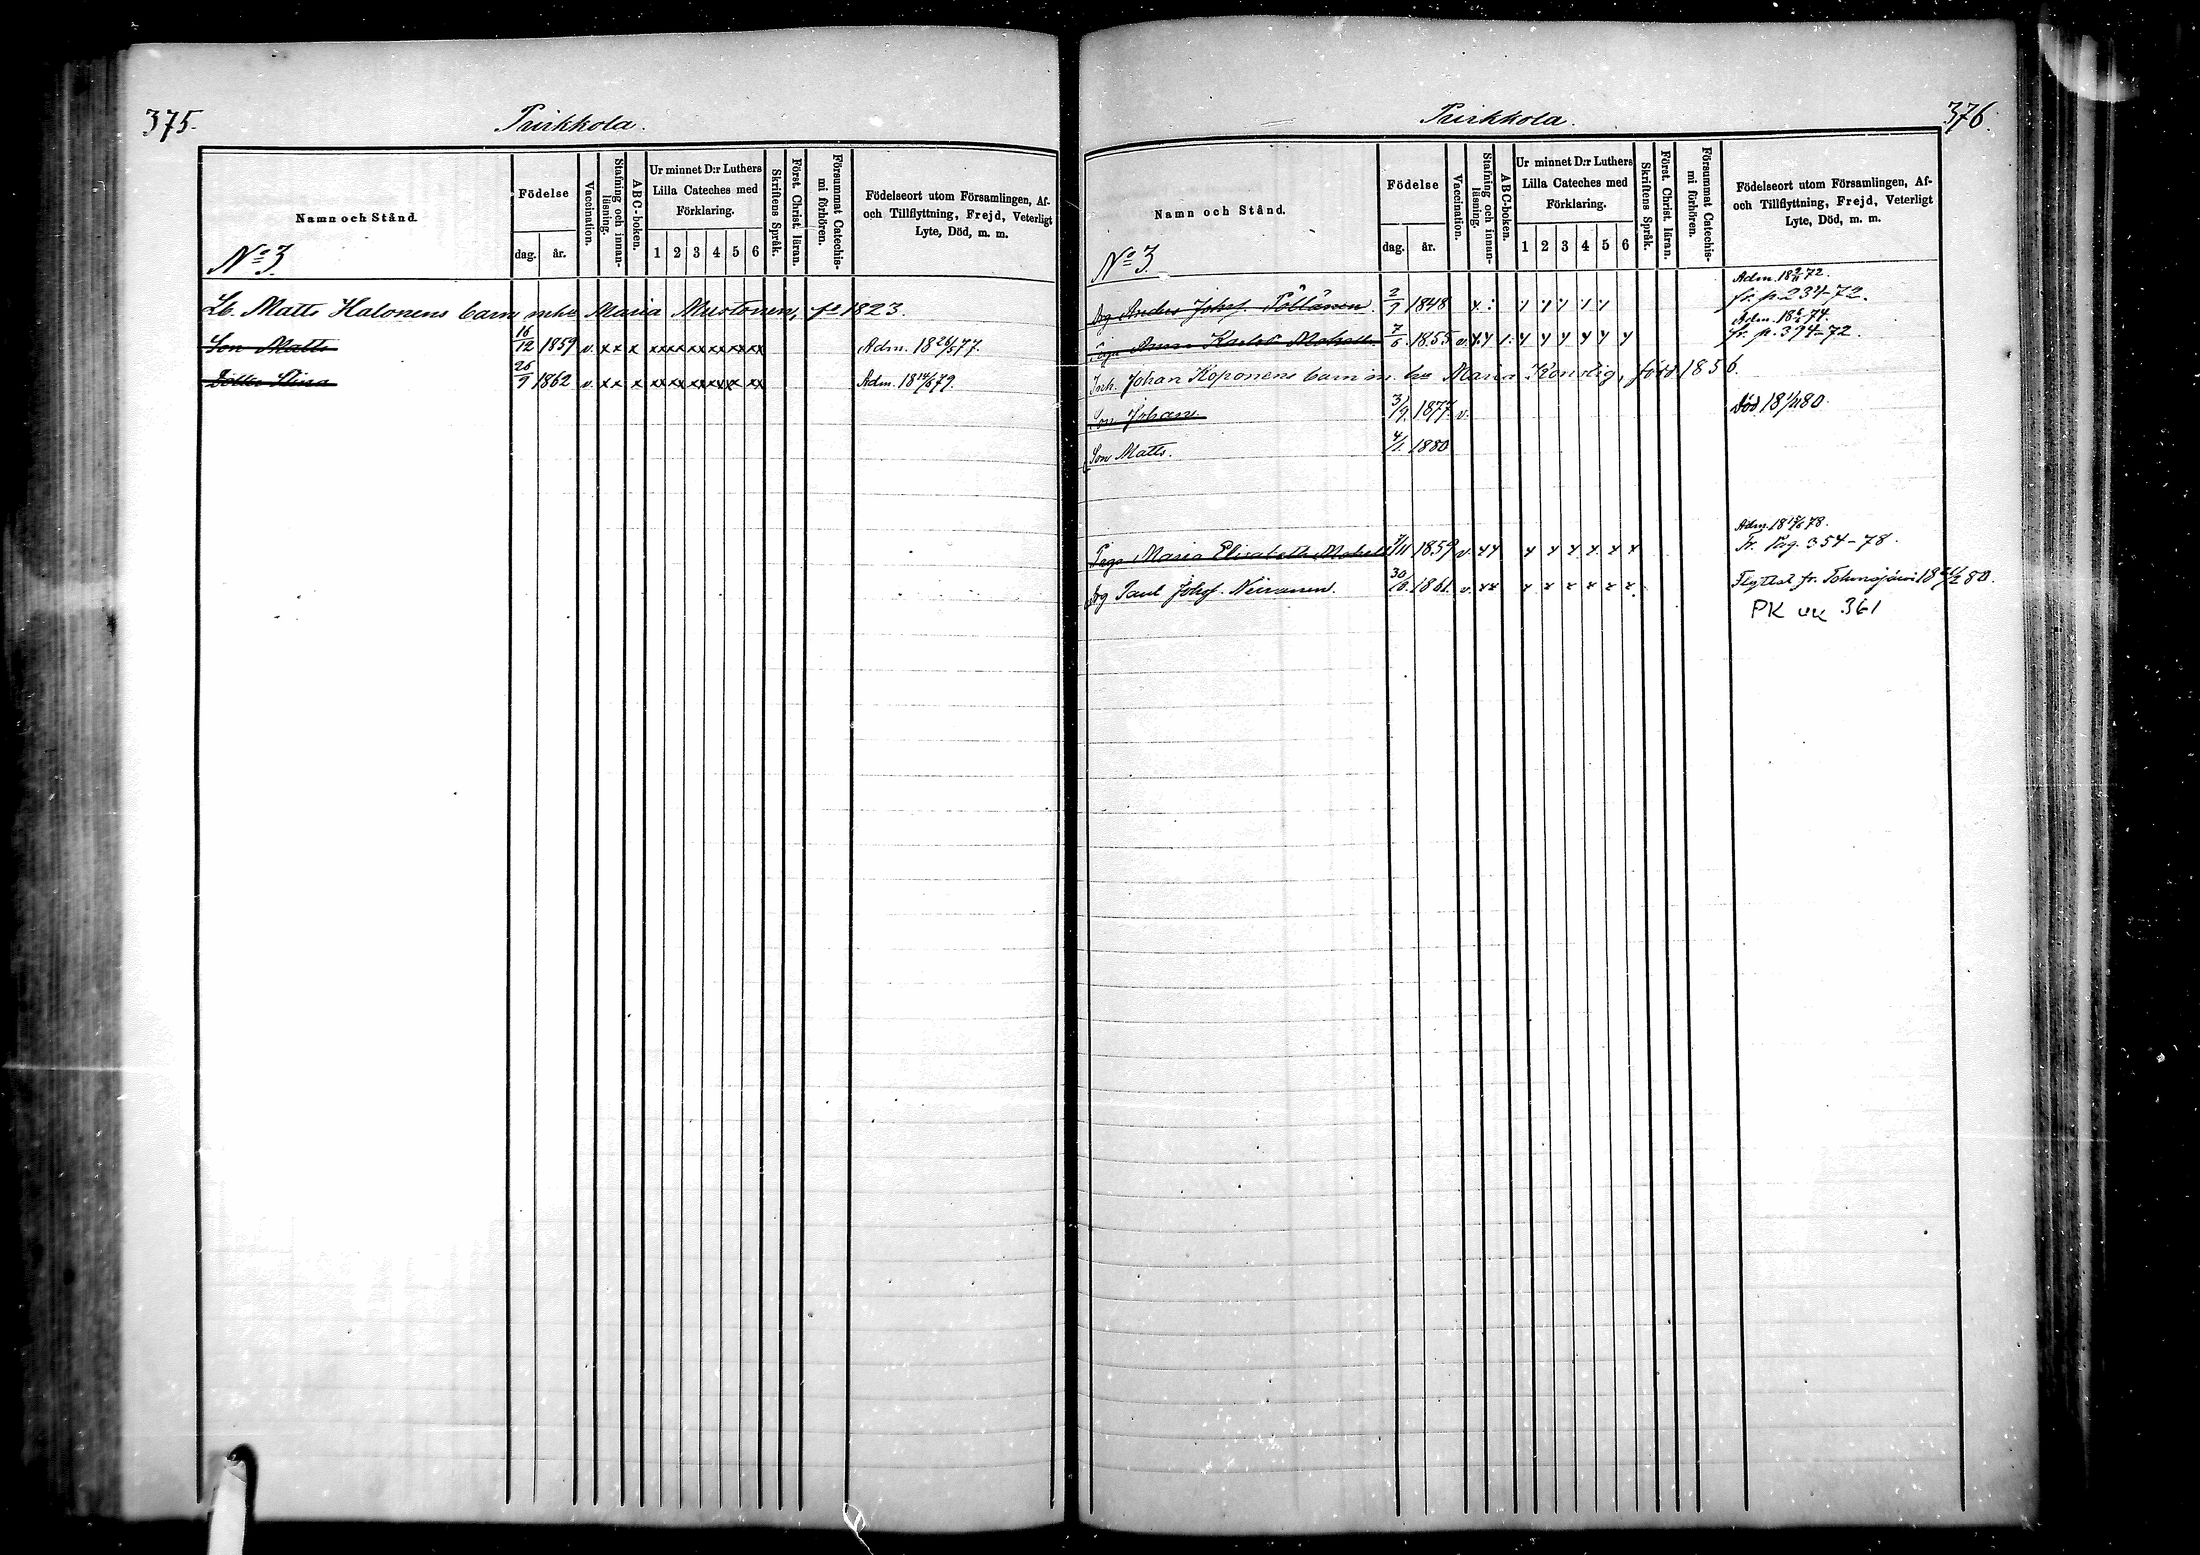 375.
Puikkola.
Namn och Stånd.
Födelse
dag.
år.
Vaccination.
Stafning och innan-
läsning.
ABC-boken.
Ur minnet D:r Luthers
Lilla Cateches med
Förklaring.
1 2 3 4 5 6
Skriftens Språk.
Först. Christ. läran.
Försummat Catechis-
mi förhören.
Födelseort utom Församlingen, Af-
och Tillflyttning, Frejd, Veterligt
Lyte, Död, m. m.
No 3.
Lb. Matts Halonens barn mhu Maria Mustonen, fe 1823.
Son Matts 16/12 1859 v. x x x xx xx xx xx xx xx Adm. 18 26/5 77.
1862 v. x x x xx xx xx xx xx xx Adm. 18 14/6 79.
376.
Puikkola.
Namn och Stånd.
Födelse
dag.
år.
Vaccination.
Stafning och innan-
läsning.
ABC-boken.
Ur minnet D:r Luthers
Lilla Cateches med
Förklaring.
1 2 3 4 5 6
Skriftens Språk.
Först. Christ. läran.
Försummat Catechis-
mi förhören.
Födelseort utom Församlingen, Af-
och Tillflyttning, Frejd, Veterligt
Lyte, Död, m. m.
No 3.
Drg Anders Johsf. Pöllänen. 2/9 1848 fr. p. 234-72.
Anna 7/6 1855 v. fr. p. 394-72.
Inh. Johan Koponens barn m. hu Maria född 1856.
Son Johan 3/9. 1877. v. död 80.
Son Matts. 4/1. 1880
Adm. 78.
Maria Elisabeth 7/11 1859 v. x x x x x x x x Fr. Pag. 354-78.
Drg Paul Johsf. 30/ 1861. v. x x x x x x x x fr. Tohmajärvi 80.
PK uu 361